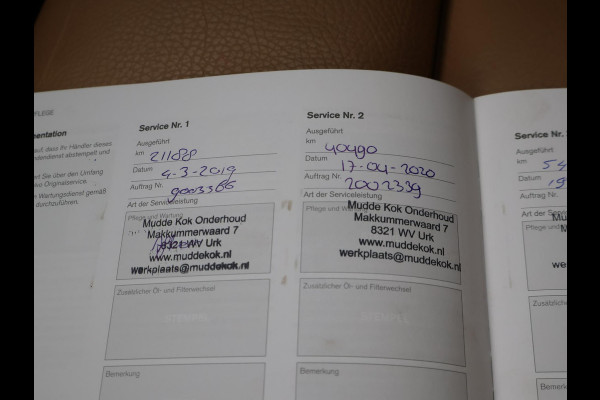 FLEGE
mentation
dass Ihr Händler dieses
abstempelt und
Sie über den Umfang
Originalservice.
Wartungsdienst gemäß
durchzuführen.
Service Nr. 1
Ausgeführt
km 21088
Datum 4-3-2019
Auftrag Nr. 9003366
Art der Serviceleistung
Pflege und Wartung
Mudde Kok Onderhoud
Makkummerwaard 7
8321 WV Urk
www.muddekok.nl
werkplaats@muddekok.nl
Zusätzlicher Öl- und Filterwechsel
STEMPEL
Bemerkung
Service Nr. 2
Ausgeführt
km 40490
Datum 17-04-2020
Auftrag Nr. 2002339
Art der Serviceleistung
Pflege und Wartung
Mudde Kok Onderhoud
Makkummerwaard 7
8321 WV Urk
www.muddekok.nl
werkplaats@muddekok.nl
Zusätzlicher Öl- und Filterwechsel
STEMPEL
Bemerkung
Service Nr.
Ausgeführt
km 54
Datum 19
Auftrag Nr.
Art der Se
Pflege und
Mudde
Makk
83
www
werkplaa
Zusätzlicher
Bemerkung